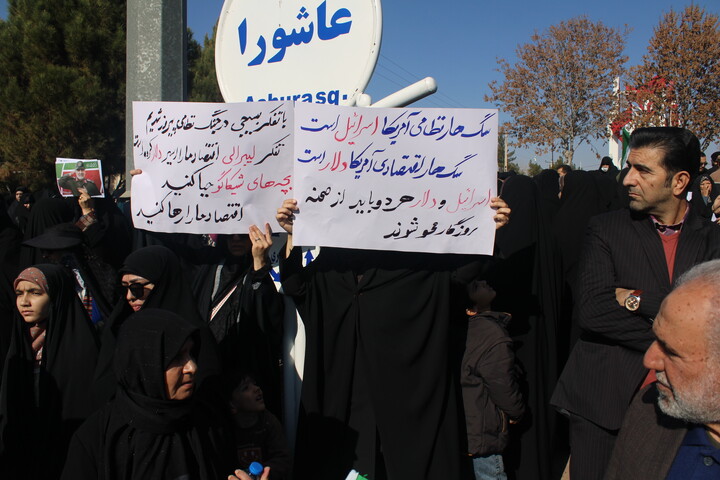 عاشورا
Ashura sq.
با تفکر بسیجی در جنگ نظامی پیروز شدیم
تفکر لیبرالی اقتصاد ما را اسیر کرده
بچه های شیکاگو حیا کنید
اقتصاد ما را رها کنید
سگ هار نظامی آمریکا اسرائیل است
سگ هار اقتصادی آمریکا دلار است
اسرائیل و دلار هر دو باید از صحنه
روزگار محو شوند